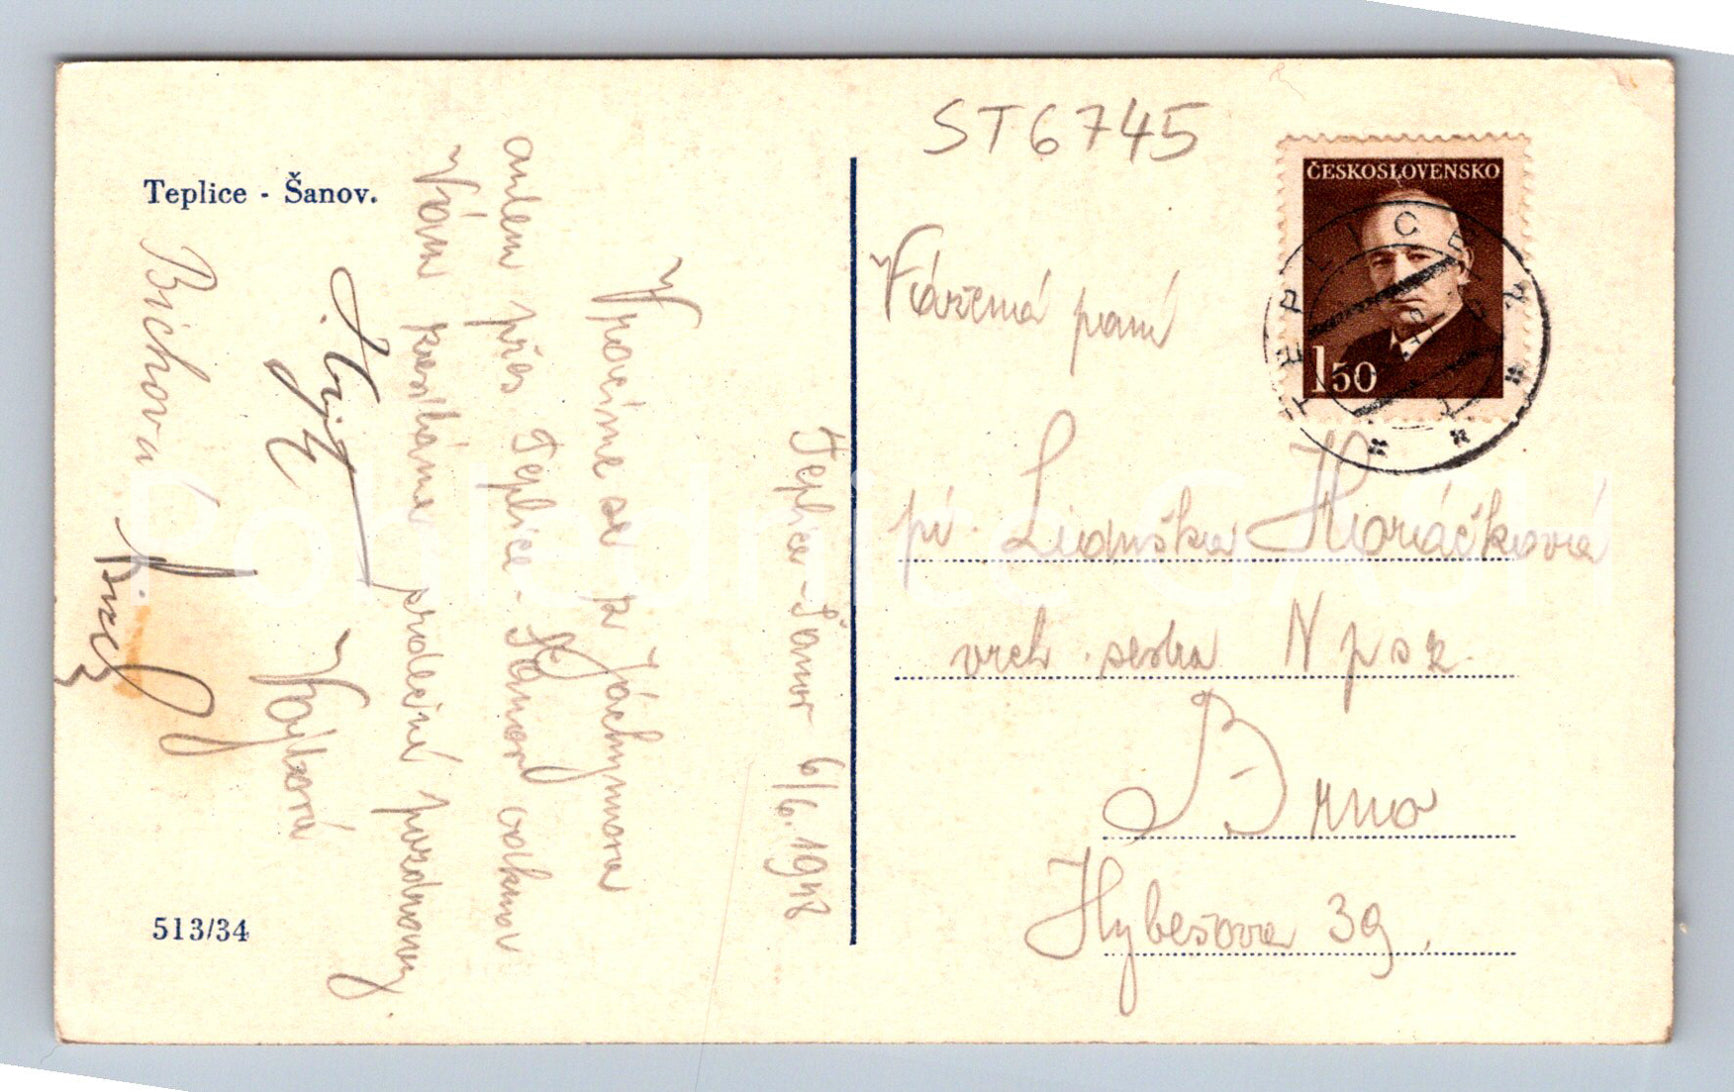 Teplice - Šanov.
513/34
Teplice-Šanov 6/6. 1948
Vracíme se z Jáchymova
autem přes Teplice-Šanov odkud
Vám zasíláme srdečné pozdravy
Vajtrová
Bichová
ST6745
ČESKOSLOVENSKO
1 50
TEPLICE
Vážená paní
pí. Liduška Horáčková
vrch. sestra N p s z.
Brno
Hybešova 39.
Pohlednice SASM